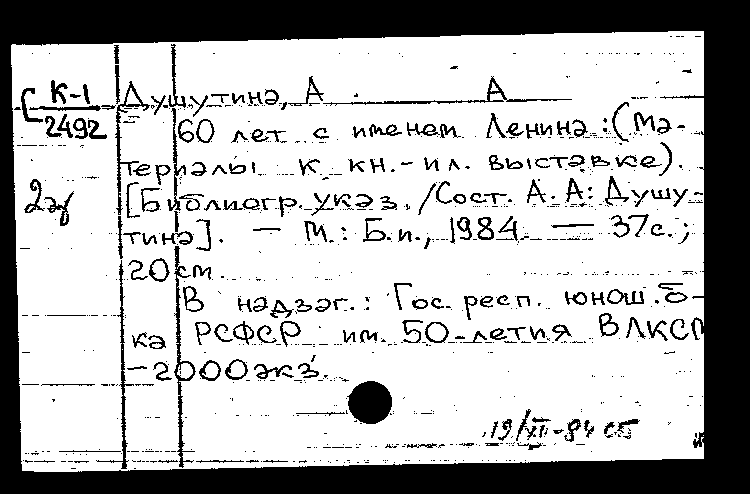 К-1
2492
Душутина, А. А
60 лет с именем Ленина: (Ма-
териалы к кн.-ил. выставке).
[Библиогр. указ. /Сост. А. А. Душу-
тина]. — М.: Б.и., 1984. — 37с.;
20 см.
В надзаг.: Гос. респ. юнош. б-
ка РСФСР им. 50-летия ВЛКСМ
-2000экз.
19/XII-84 СБ